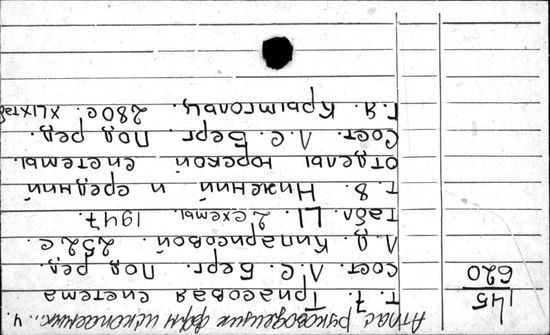 145
620
Атлас руководящих форм ископаемых... 4.
т. 7. Триасовая система
сост. Л.С. Берг. Под ред.
Л.Д. Кипарисовой. 252 с.
табл. LI. 2 схемы. 1947.
т. 8. Нижний и средний
отделы юрской системы.
Сост. Л.С. Берг. Под ред.
Г.Я. Крымгольц. 280 с. XLIX таб